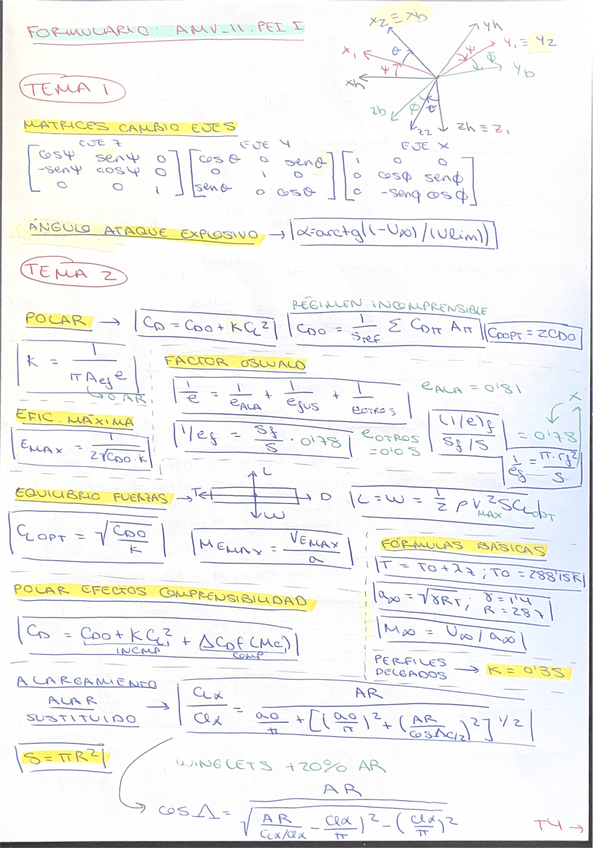 FORMULARIO: AMV_11.PEI I
x2 ≡ xb
yh
x1
θ
ψ
y1 = y2
ψ
Φ
yb
xh
zb
Φ
θ
z2
zh ≡ z1
TEMA 1
MATRICES CAMBIO EJES
EJE Z EJE Y EJE X
[cosψ senψ 0] [cosθ 0 senθ] [1 0 0]
[-senψ cosψ 0] [0 1 0] [0 cosϕ senϕ]
[0 0 1] [senθ 0 cosθ] [0 -senϕ cosϕ]
ÁNGULO ATAQUE EXPLOSIVO → α=arctg((-U∞)/(Ulim))
TEMA 2
RÉGIMEN INCOMPRENSIBLE
POLAR → CD = CD0 + KCL² CD0 = 1/Sref Σ CDπ Aπ CDOPT = 2CD0
K = 1/(πAef e)
↳ o AR
FACTOR OSWALD
1/e = 1/eALA + 1/efus + 1/eotros
eALA = 0'81
x
EFIC. MÁXIMA
EMAX = 1/(2√(CD0·K))
1/ef = Sf/S · 0'78
eOTROS = 0'05
(1/e)f / (Sf/S) = 0'78
1/ef = π·rf²/S
EQUILIBRIO FUERZAS → T L D W
L = W = 1/2 ρ V²MAX S CLOPT
CLOPT = √(CD0/K)
MEMAX = VEMAX/a
FÓRMULAS BÁSICAS
T = T0 + λz ; T0 = 288'15K
a∞ = √(γRT) ; γ = 1'4
R = 287
M∞ = U∞/a∞
POLAR EFECTOS COMPRENSIBILIDAD
CD = CD0 + KCL² + ΔCDf(Mc)
INCMP COMP
PERFILES DELGADOS → K = 0'35
ALARGAMIENTO
ALAR
SUSTITUIDO → CLα/Clα = AR / (a0/π + [(a0/π)² + (AR/cosΛc/2)²]^1/2)
S = πR²
WINGLETS +20% AR
cos Λ = AR / √((AR/(CLα/Clα) - Clα/π)² - (Clα/π)²)
T4 →